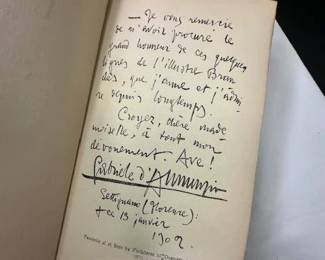 — Je vous remercie
de m'avoir procuré le
grand honneur de ces quelques
lignes de l'illustre Bran
dès, que j'aime et j'admi
re depuis longtemps.
Croyez, chère made
moiselle, à tout mon
dévouement. Ave!
Gabriele d'Annunzio
Settignano (Florence):
ce 13 janvier
1902.